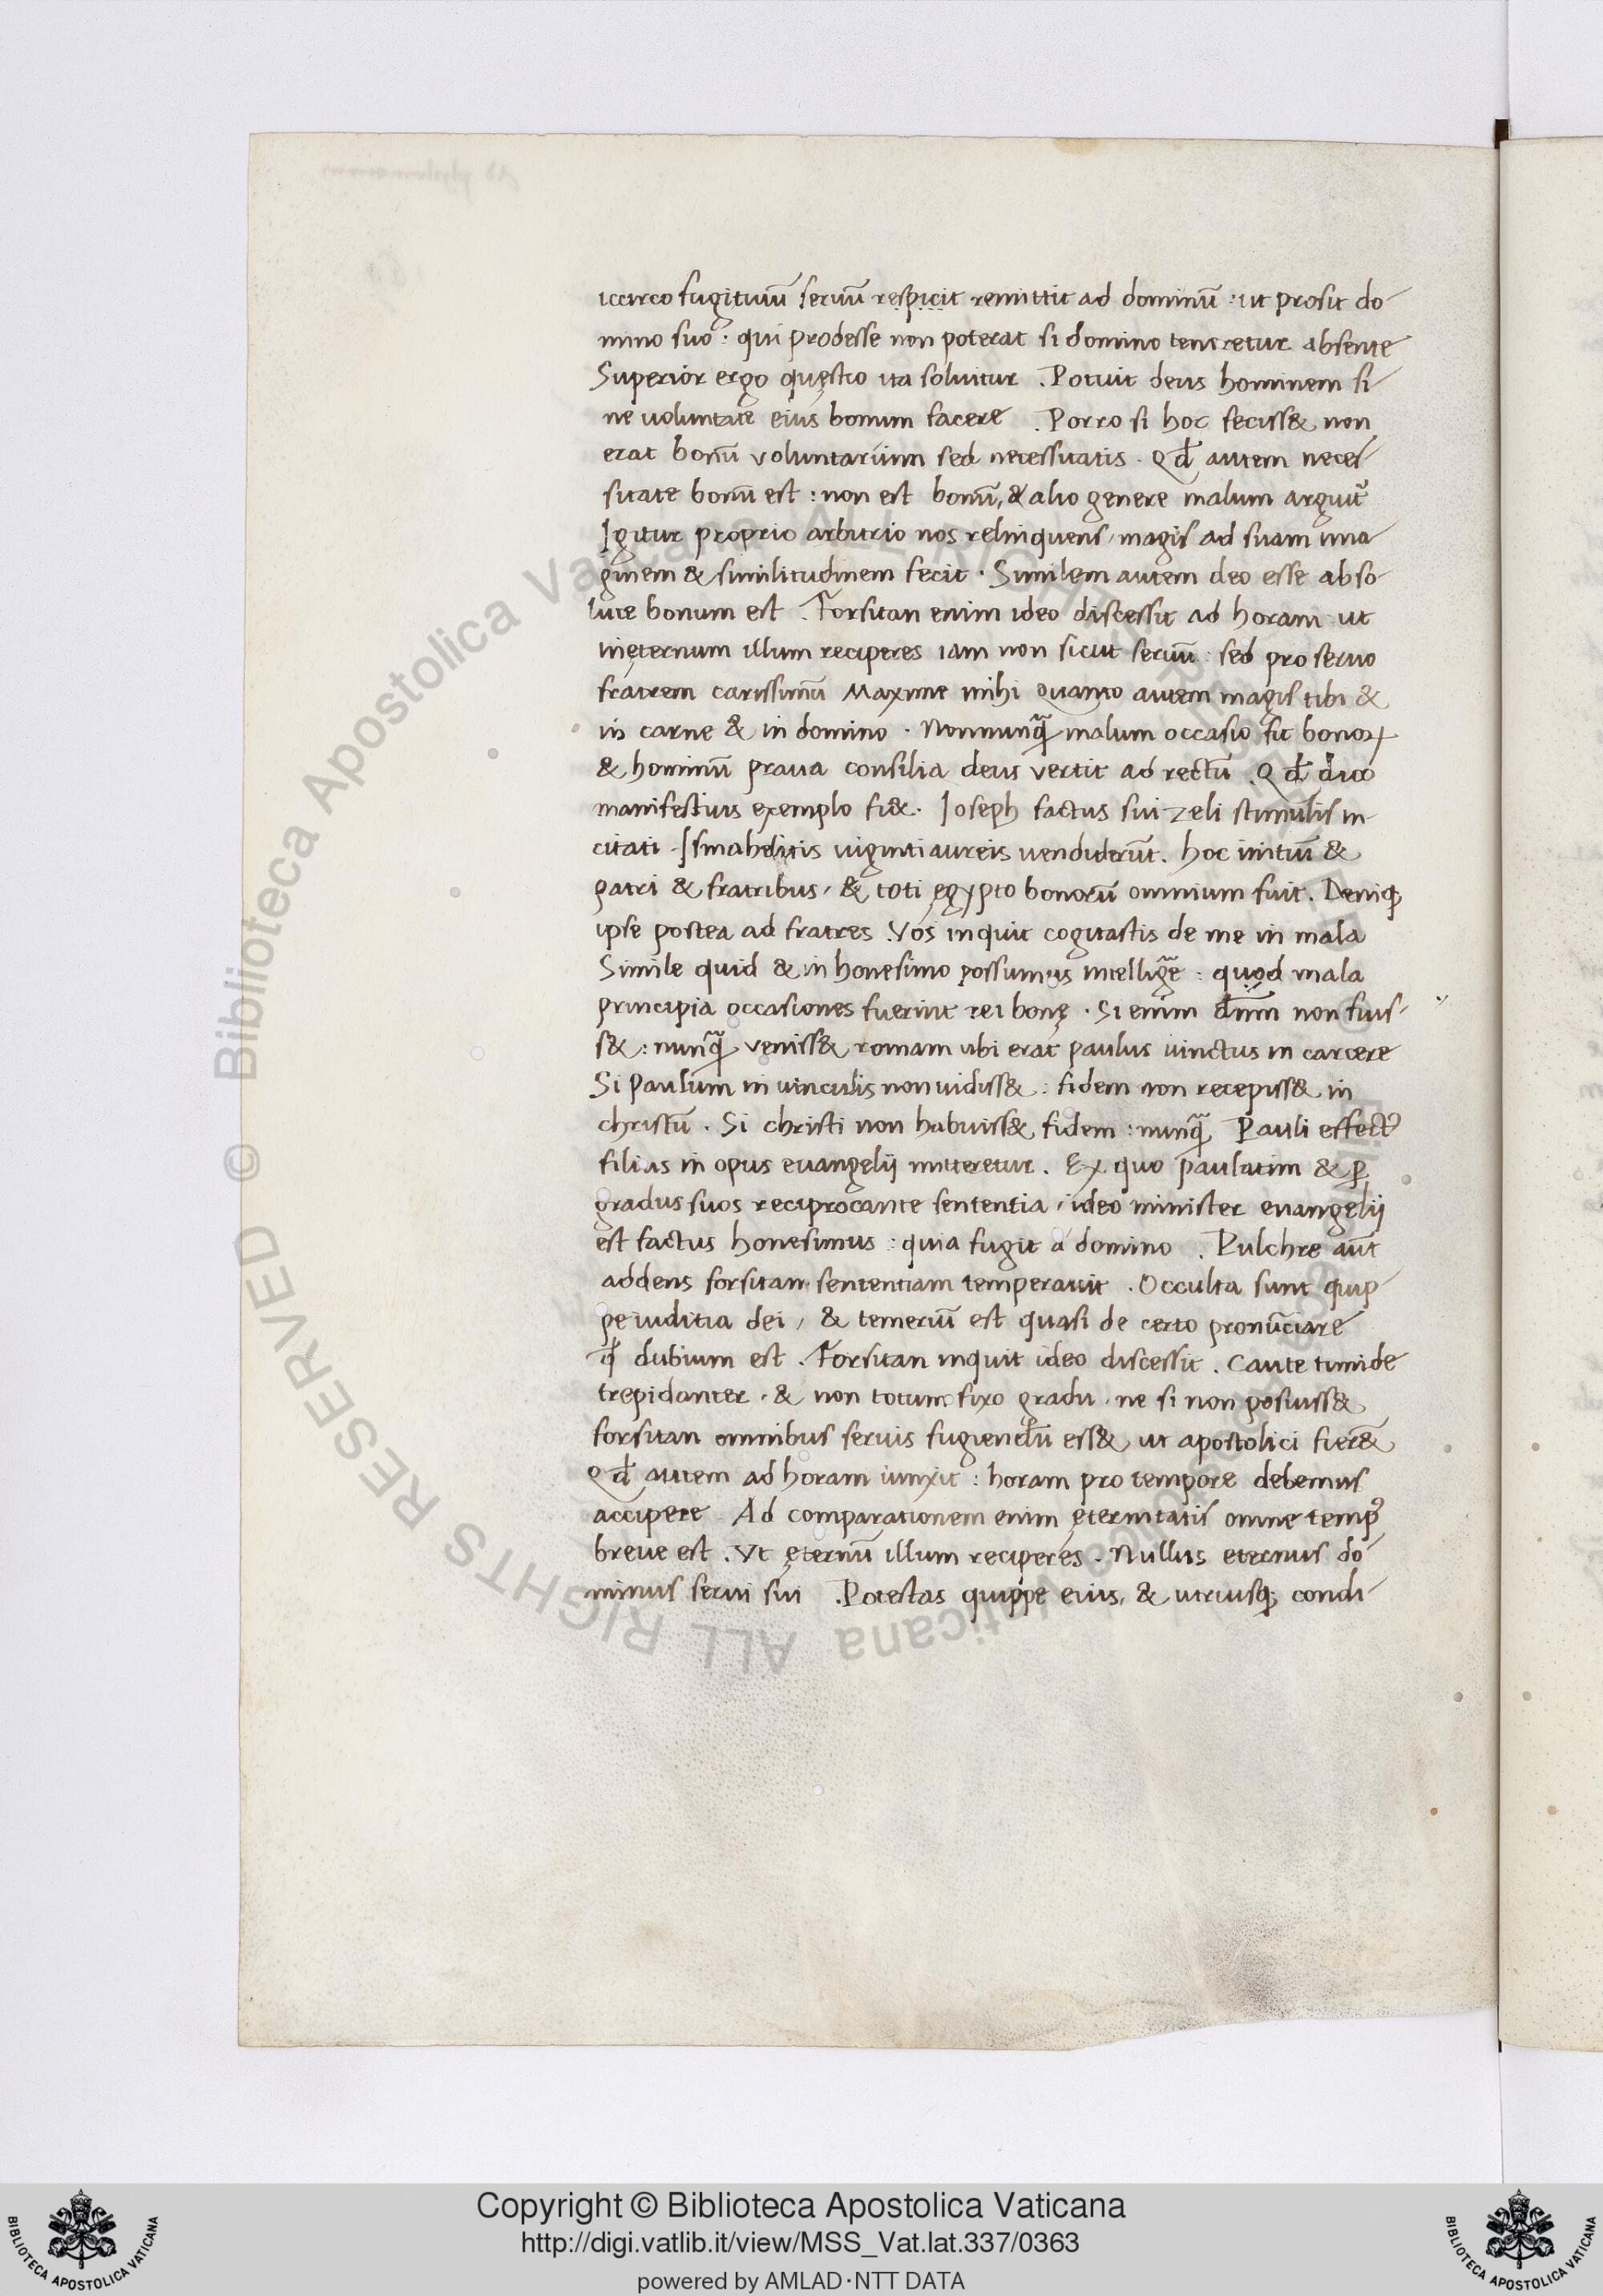 iccirco fugitiuū seruū respicit remittit ad dominū : ut prosit do-
mino suo : qui prodesse non poterat si domino teneretur absente
Superior ergo quęstio ita soluitur . Potuit deus hominem si-
ne uoluntate eius bonum facere . Porro si hoc feciss& non
erat bonū voluntarium sed necessitatis . Qđ autem neces-
sitate bonū est : non est bonū, & alio genere malum arguit᷑
Igitur proprio arbitrio nos relinquens, magis ad suam ima-
ginem & similitudinem fecit . Similem autem deo esse abso-
lute bonum est . Forsitan enim ideo discessit ad horam ut
inęternum illum reciperes iam non sicut seruū : sed pro seruo
fratrem carissimū Maxime mihi Quanto autem magis tibi &
in carne & in domino . Nonnunq̃ malum occasio fit bonoꝝ
& hominū praua consilia deus vertit ad rectū . Qđ dico
manifestius exemplo fi& . Ioseph factus sui zeli stimulis in-
citati Ismahelitis uiginti aureis uendiderūt . hoc initiū &
patri & fratribus, & toti ęgypto bonorū omnium fuit . Deniqꝫ
ipse postea ad fratres . Vos inquit cogitastis de me in mala
Simile quid & in honesimo possumus intelligẽ : quod mala
principia occasiones fuerint rei bonę . Si enim dñm non fuis-
s& : nunq̃ veniss& romam ubi erat paulus uinctus in carcere
Si Paulum in uinculis non uidiss& : fidem non recepiss& in
christū . Si christi non habuiss& fidem : nunq̃ Pauli effectꝰ
filius in opus euangelij mitteretur . Ex quo paulatim & ꝑ
gradus suos reciprocante sententia, ideo minister euangelij
est factus honesimus : quia fugit a domino . Pulchre aūt
addens forsitan sententiam temperauit . Occulta sunt quip-
pe iuditia dei, & temeriū est quasi de certo pronūciare
qđ dubium est . Forsitan inquit ideo discessit . Caute timide
trepidanter, & non totum fixo gradu, ne si non posuiss&
forsitan omnibus seruis fugiendū ess& ut apostolici fier&
Qđ autem ad horam iunxit : horam pro tempore debemus
accipere Ad comparationem enim ęternitatis omne tempꝰ
breue est . Vt ęternū illum reciperes . Nullus eternus do-
minus serui sui . Potestas quippe eius, & utriusqꝫ condi-
Copyright © Biblioteca Apostolica Vaticana
http://digi.vatlib.it/view/MSS_Vat.lat.337/0363
powered by AMLAD·NTT DATA